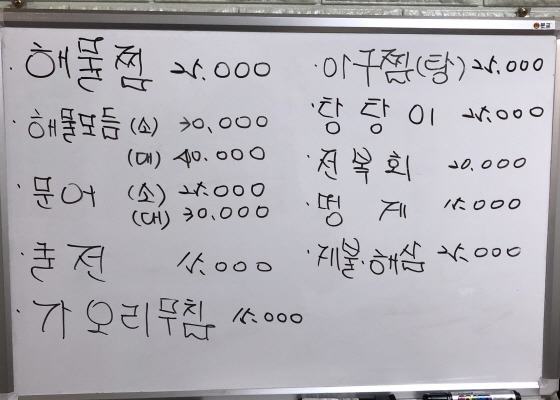 · 해물찜 25.000
· 해물모듬 (소) 30.000
(대) 40.000
· 문어 (소) 25.000
(대) 30.000
· 굴전 15.000
· 가오리무침 15.000
· 아구찜(탕) 25.000
· 탕탕이 25.000
· 전복회 20.000
· 멍게 15.000
· 개불.해삼 25.000
문교